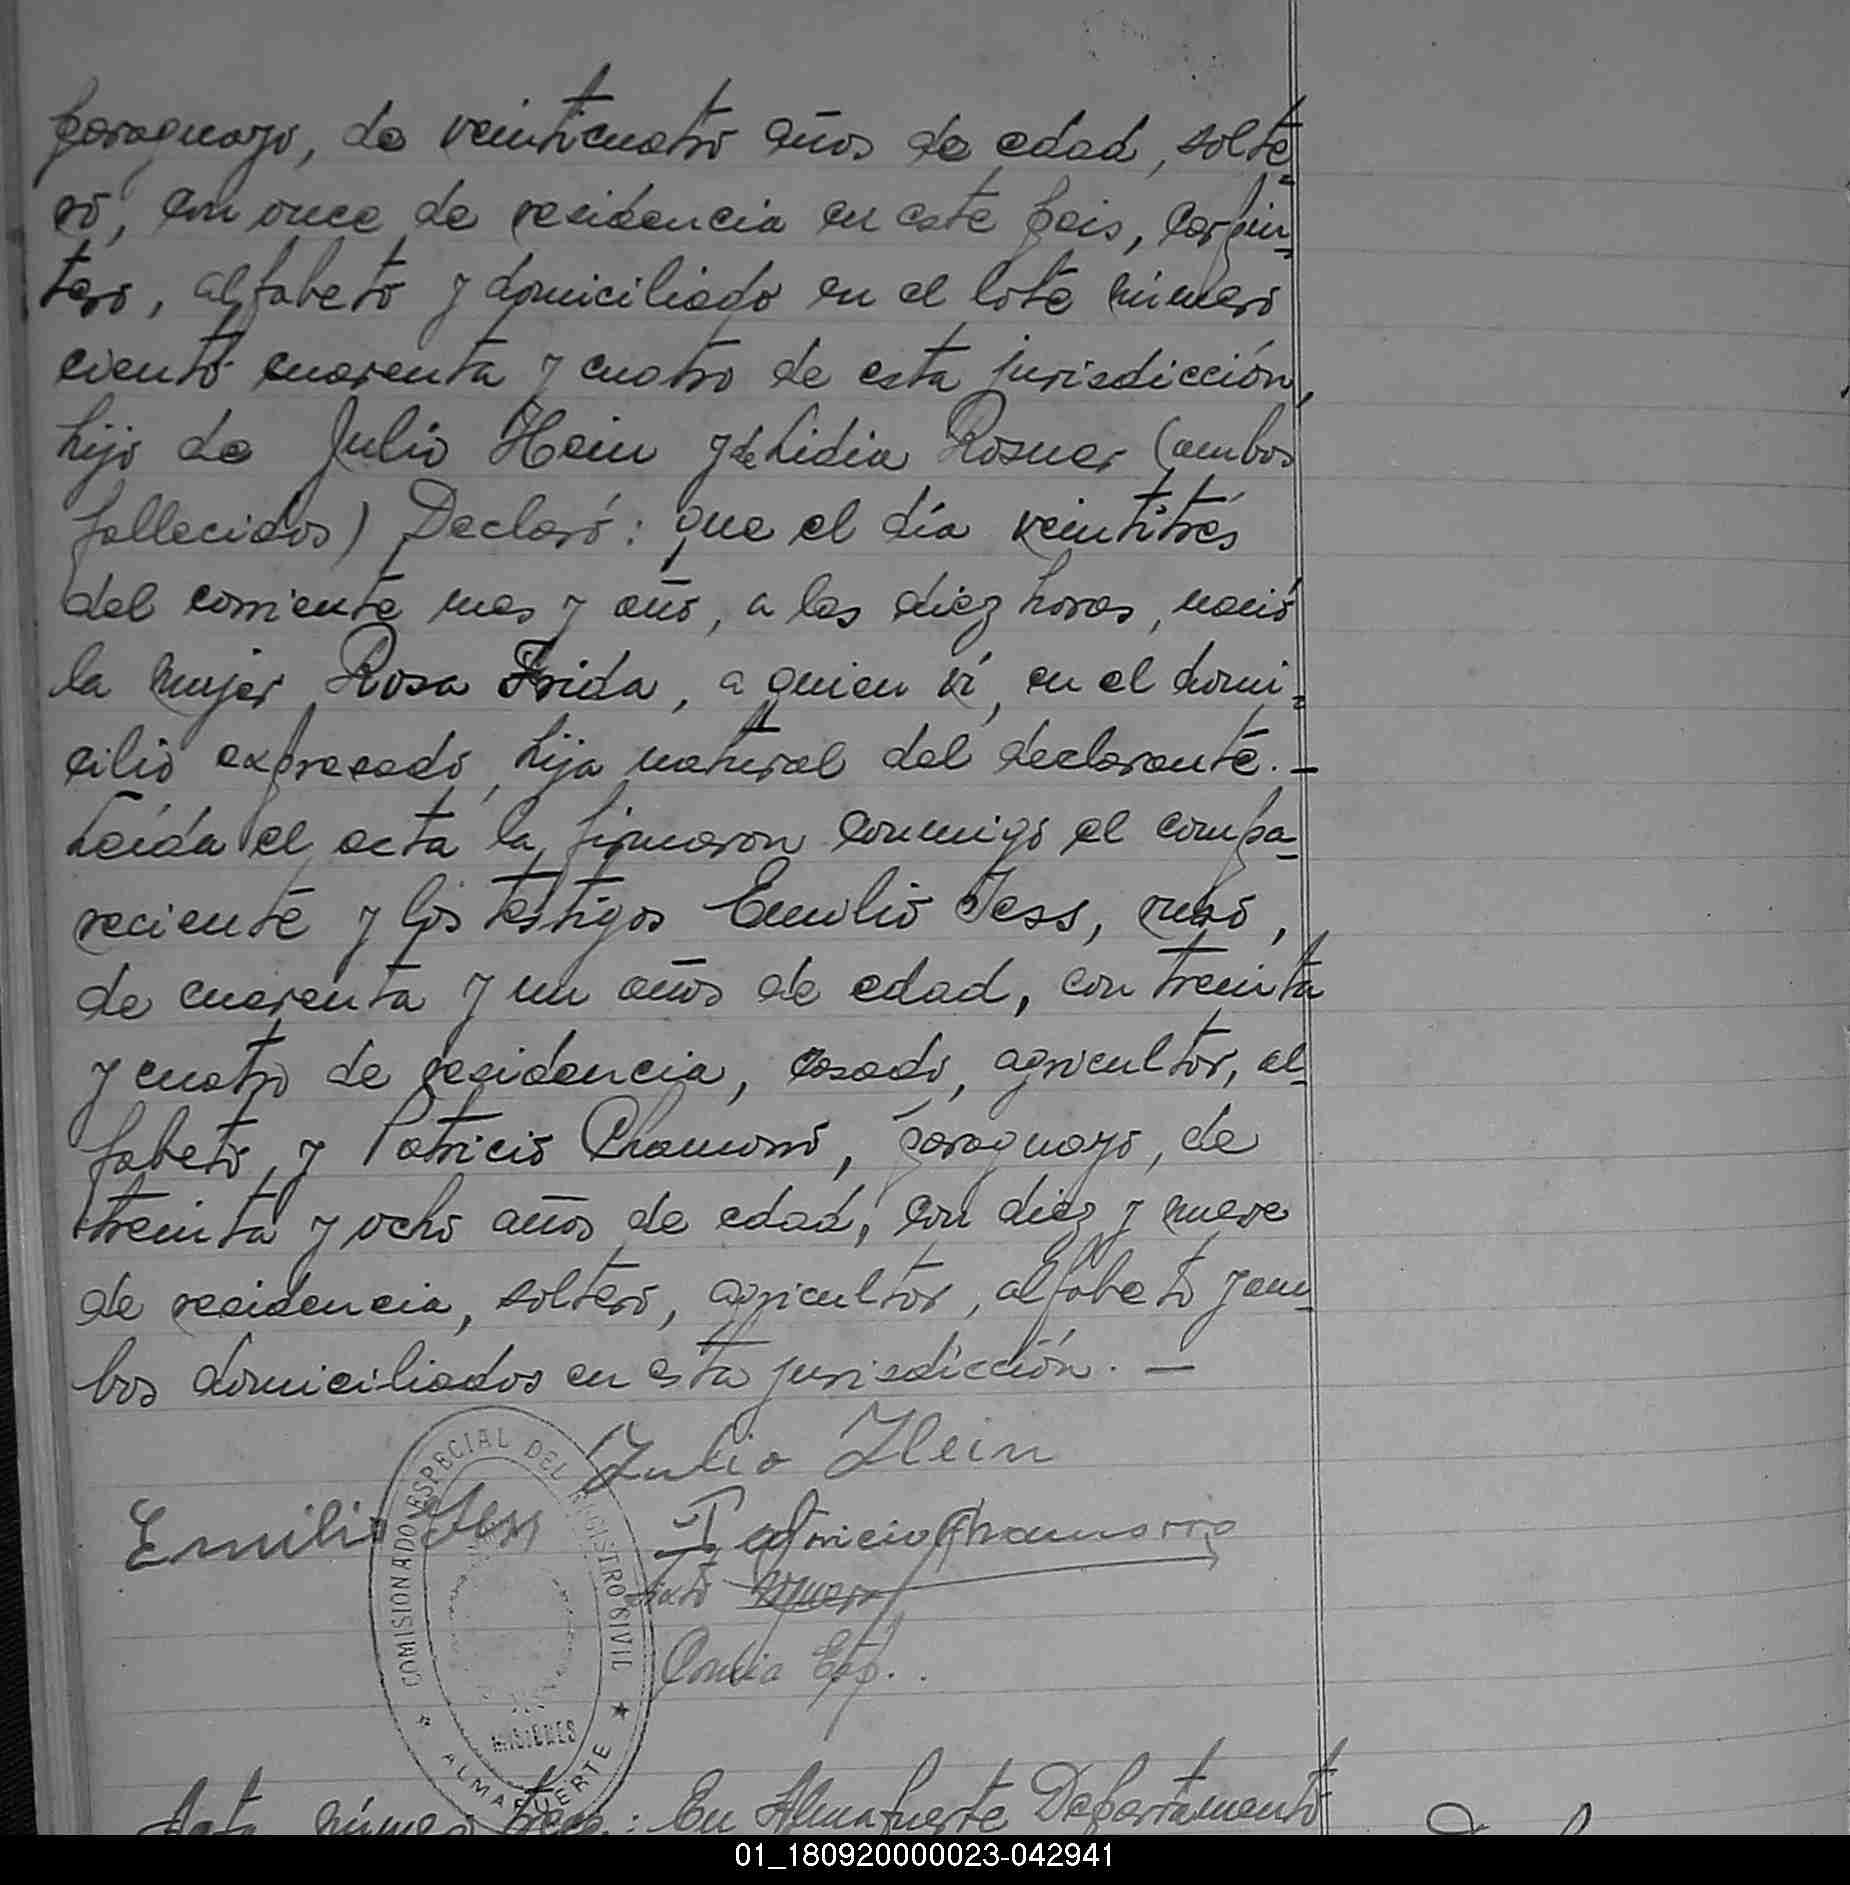 paraguayo, de veinticuatro años de edad, solte-
ro, con once de residencia en este pais, carpin-
tero, alfabeto y domiciliado en el lote número
ciento cuarenta y cuatro de esta jurisdicción,
hijo de Julio Hein y de Lidia Rosner (ambos
fallecidos) Declaró: que el día veintitrés
del corriente mes y año, a las diez horas, nació
la mujer Rosa Frida, a quien vi, en el domi-
cilio expresado, hija natural del declarante. -
Leída el acta la firmaron conmigo el compa-
reciente y los testigos Emilio Jess, ruso,
de cuarenta y un años de edad, con treinta
y cuatro de residencia, casado, agricultor, al-
fabeto, y Patricio Chamorro, paraguayo, de
treinta y ocho años de edad, con diez y nueve
de residencia, soltero, agricultor, alfabeto y am-
bos domiciliados en esta jurisdicción. -
Julio Hein
Emilio Jess
Patricio Chamorro
COMISIONADO ESPECIAL DEL REGISTRO CIVIL
MISIONES
ALMAFUERTE
Acta número trece: En Almafuerte Departamento
01_180920000023-042941